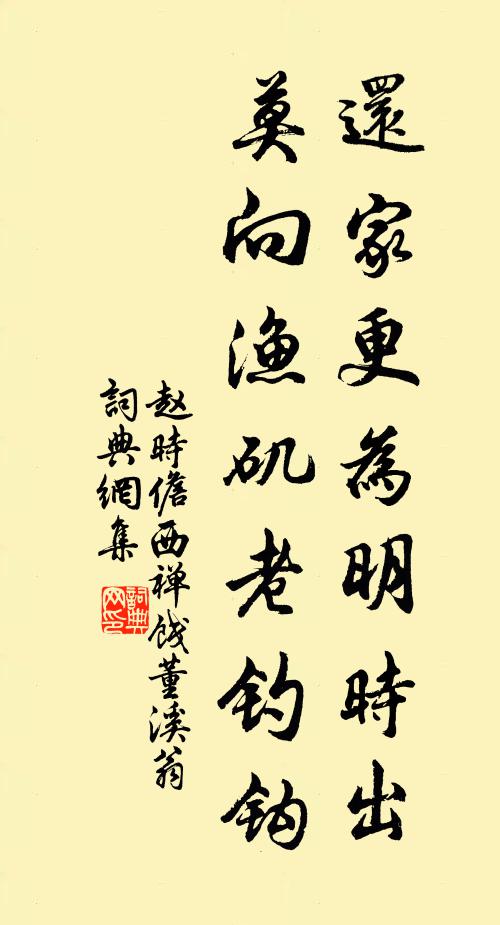 還家更為明時出
莫向漁矶老钓钩
赵時儋西禅饯董溪翁
詞典網集
詞典
网印